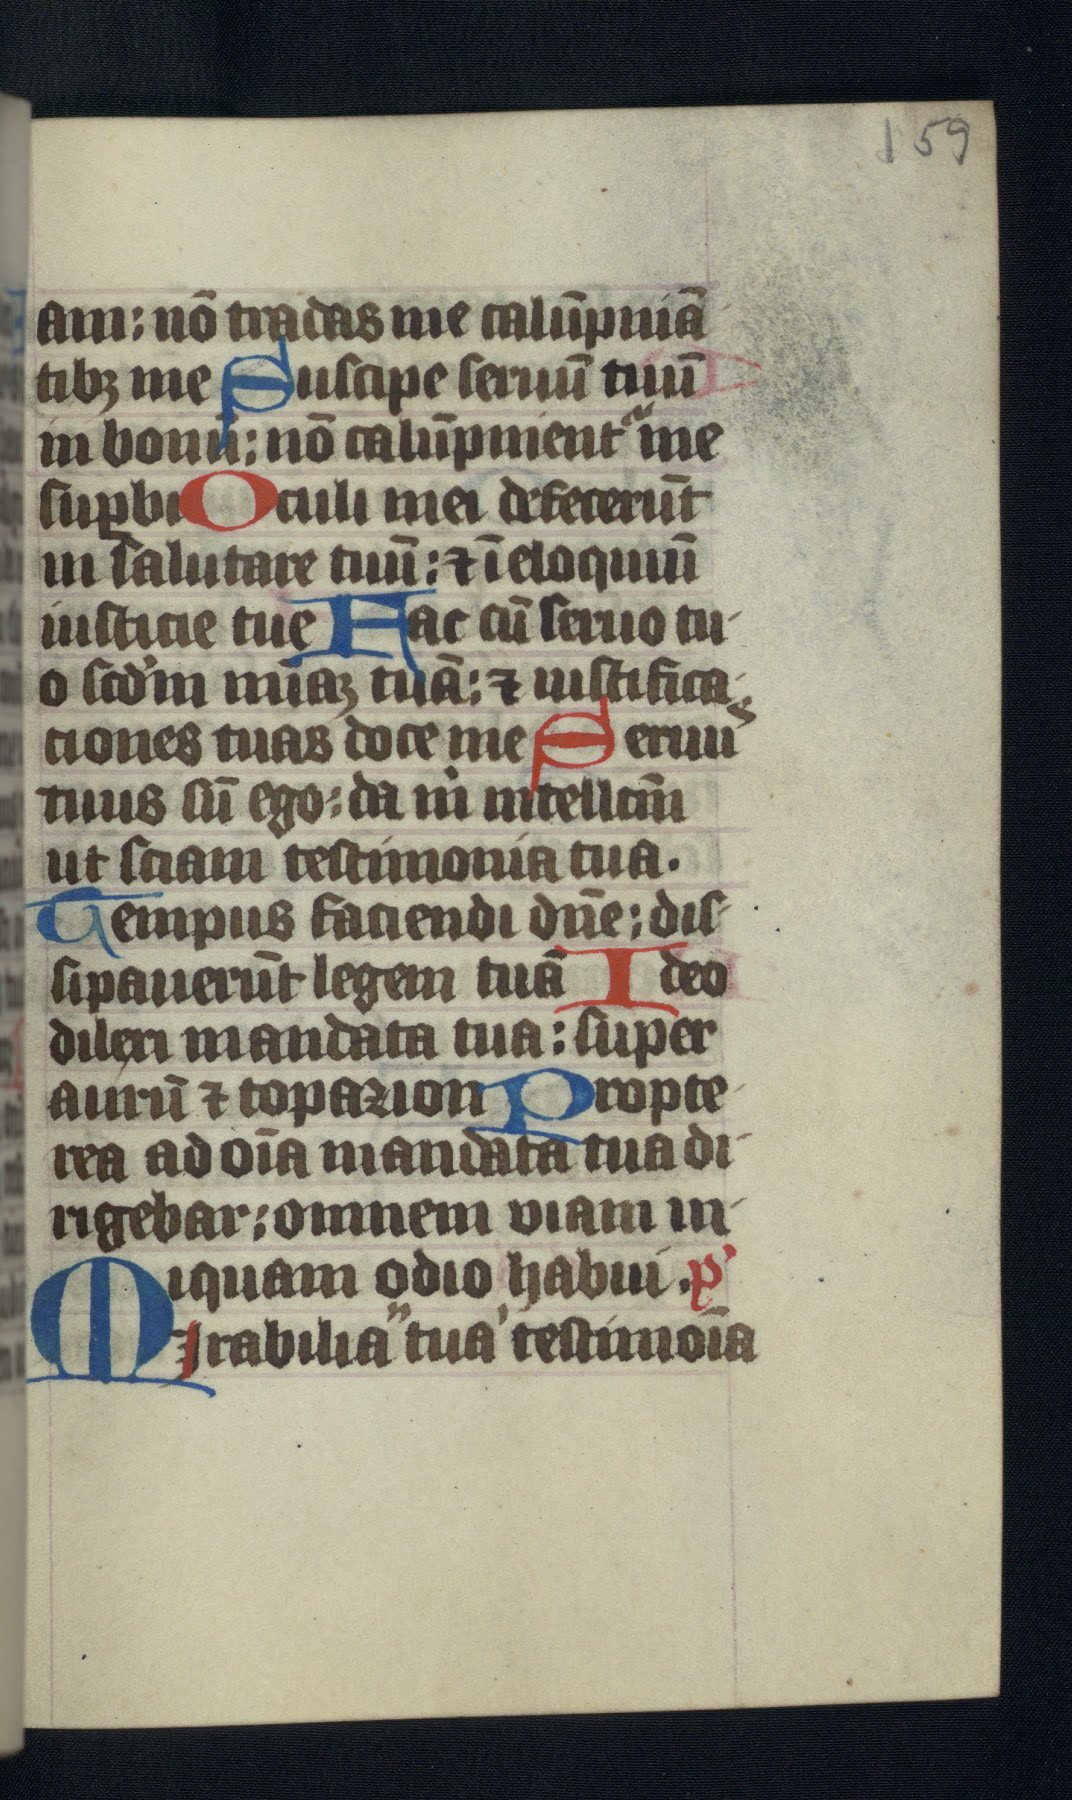 159
am: nō tradas me calūpniā
tibꝫ me Suscipe seruū tuū
in bonū: nō calūpnient me
suꝑbi Oculi mei defecerūt
in salutare tuū: ⁊ ī eloquiū
iusticie tue Fac cū seruo tu-
o scd'm mīaꝫ tuā: ⁊ iustifica-
ciones tuas doce me Seruus
tuus sū ego: da m̍ intellcm̄
ut sciam testimonia tua.
Tempus faciendi dn̄e: dis-
sipauerūt legem tuā Ideo
dilexi mandata tua: super
aurū ⁊ topazion Propte-
rea ad oīa mandata tua di-
rigebar: omnem viam in-
iquam odio habui. p'
Mirabilia tua testimoīa